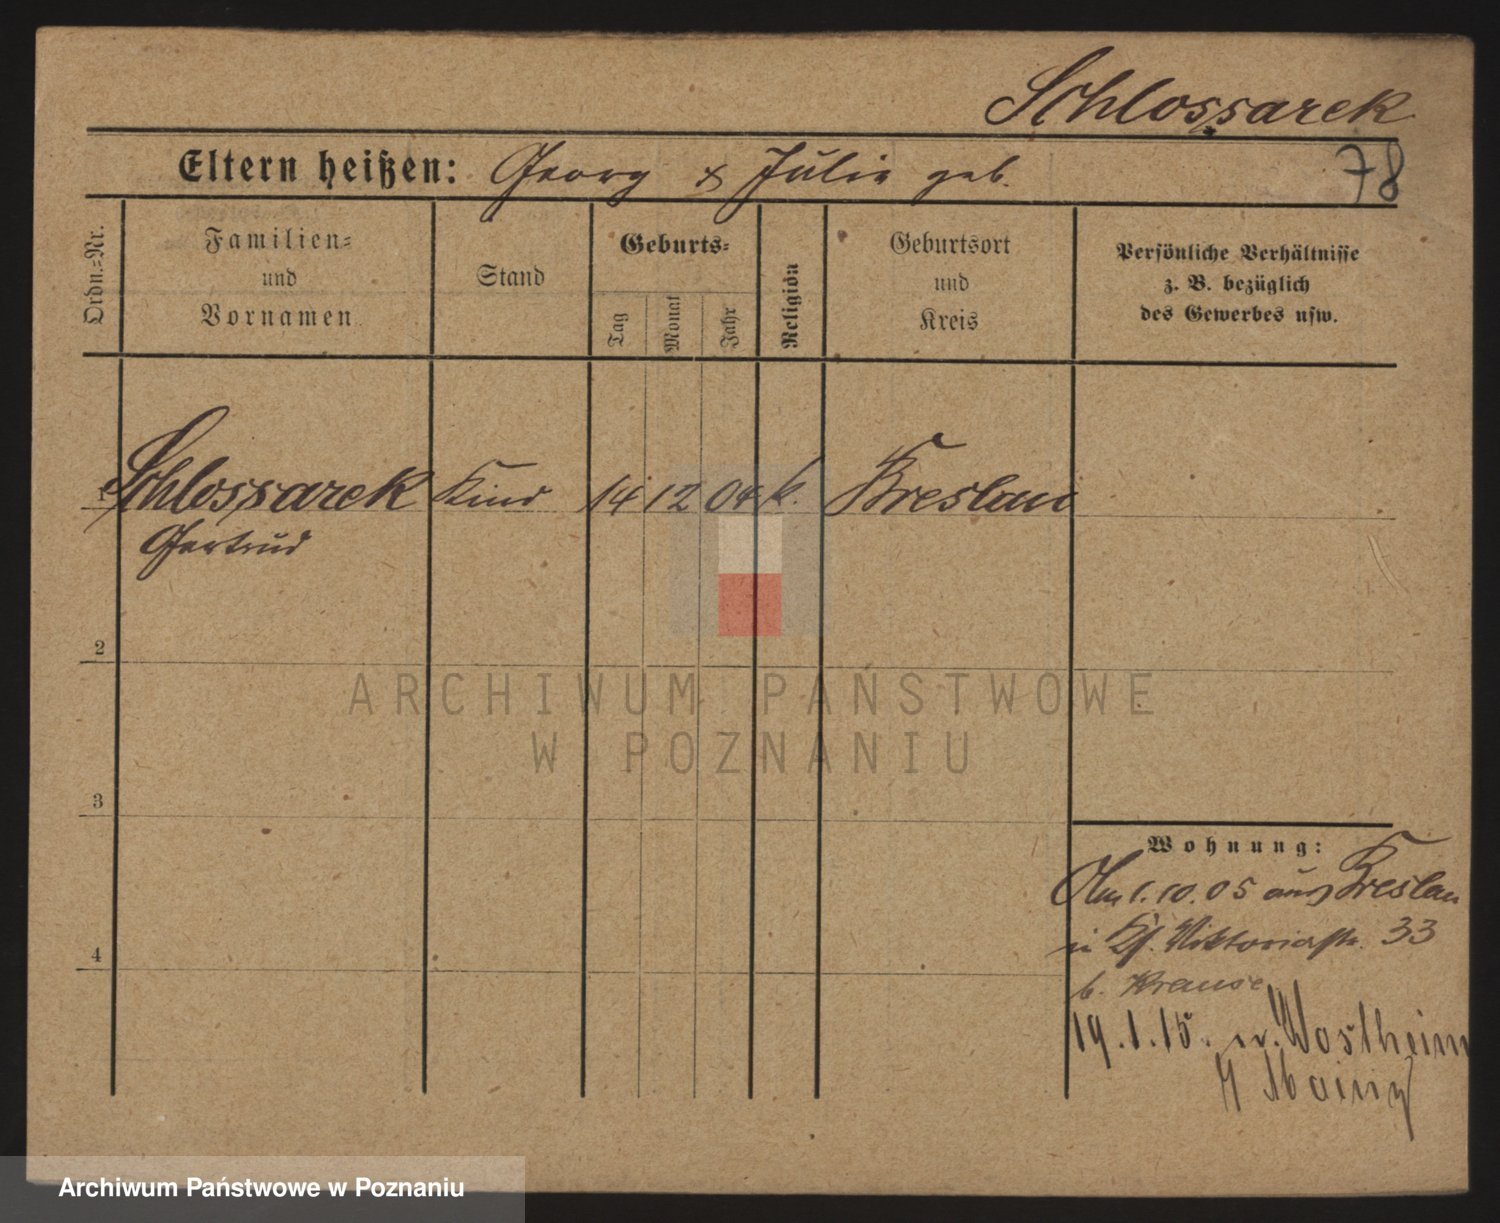 Schlossarek
Eltern heißen: Georg & Julie geb.
78
Ordn.=Nr.
Familien=
und
Vornamen
Stand
Geburts=
Tag
Monat
Jahr
Religion
Geburtsort
und
Kreis
Persönliche Verhältnisse
z. B. bezüglich
des Gewerbes usw.
1 Schlossarek Kind 14 12 04 k. Breslau
Gertrud
2
3
4
Wohnung:
Am 1.10.05 aus Breslau
in Viktoriastr. 33
b. Krause
19.1.15. n. Mostheim
Mainz
ARCHIWUM PAŃSTWOWE
W POZNANIU
Archiwum Państwowe w Poznaniu